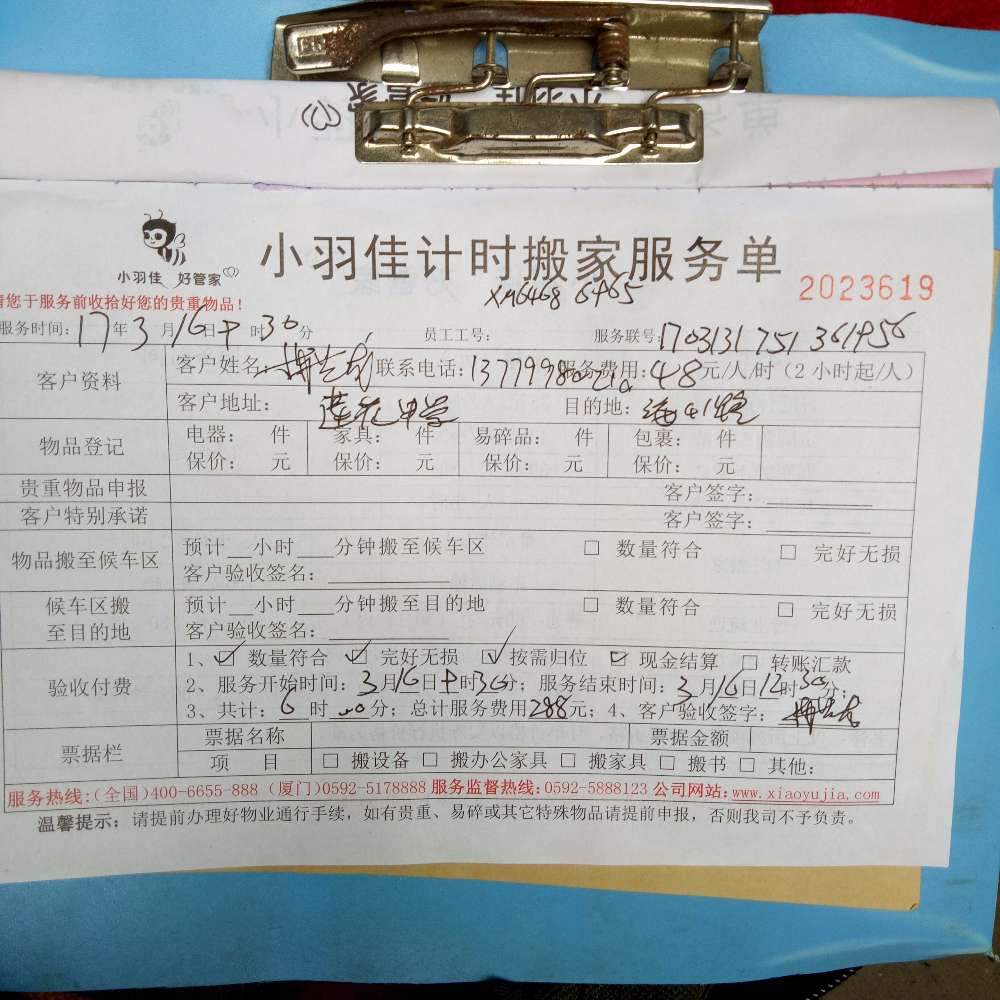 小羽佳 好管家
小羽佳计时搬家服务单
2023619
请您于服务前收拾好您的贵重物品！
XM6468 6465
服务时间：17年3月16日 时30分 员工工号： 服务联号：1703131751361956
客户资料 客户姓名： 联系电话： 服务费用：48元/人/时（2小时起/人）
客户地址：莲花中学 目的地：
物品登记 电器： 件 家具： 件 易碎品： 件 包裹： 件
保价： 元 保价： 元 保价： 元 保价： 元
贵重物品申报 客户签字：
客户特别承诺 客户签字：
物品搬至候车区 预计__小时___分钟搬至候车区 □ 数量符合 □ 完好无损
客户验收签名：
候车区搬至目的地 预计__小时___分钟搬至目的地 □ 数量符合 □ 完好无损
客户验收签名：
验收付费 1、☑ 数量符合 ☑ 完好无损 ☑ 按需归位 ☑ 现金结算 □ 转账汇款
2、服务开始时间：3月16日 时30分；服务结束时间：3月16日12时30分；
3、共计：6时 分；总计服务费用288元；4、客户验收签字：
票据栏 票据名称 票据金额
项 目 □ 搬设备 □ 搬办公家具 □ 搬家具 □ 搬书 □ 其他：
服务热线：(全国)400-6655-888 (厦门)0592-5178888 服务监督热线：0592-5888123 公司网站：www.xiaoyujia.com
温馨提示：请提前办理好物业通行手续，如有贵重、易碎或其它特殊物品请提前申报，否则我司不予负责。